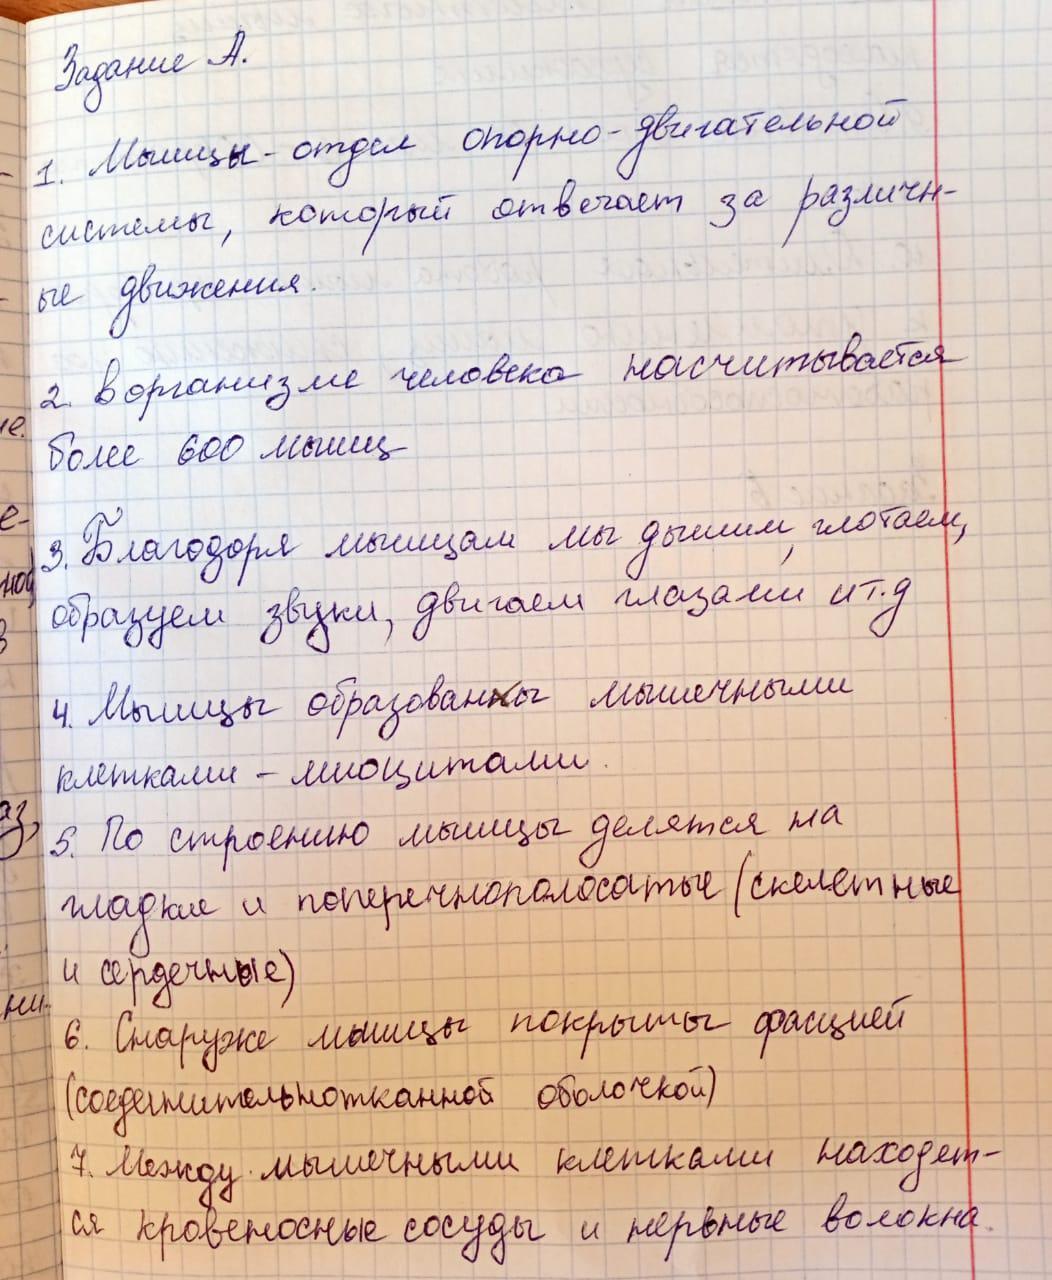 Задание А.
1. Мышцы - отдел опорно-двигательной
системы, который отвечает за различн-
ые движения.
2. В организме человека насчитывается
более 600 мышц
3. Благодоря мышцам мы дышим, глотаем,
образуем звуки, двигаем глазами и т.д
4. Мышцы образованы мышечными
клетками - миоцитами.
5. По строению мышцы делятся на
гладкие и поперечнополосатые (скелетные
и сердечные)
6. Снаружи мышцы покрыты фасцией
(соединительнотканной оболочкой)
7. Между мышечными клетками находет-
ся кровеносные сосуды и нервные волокна.